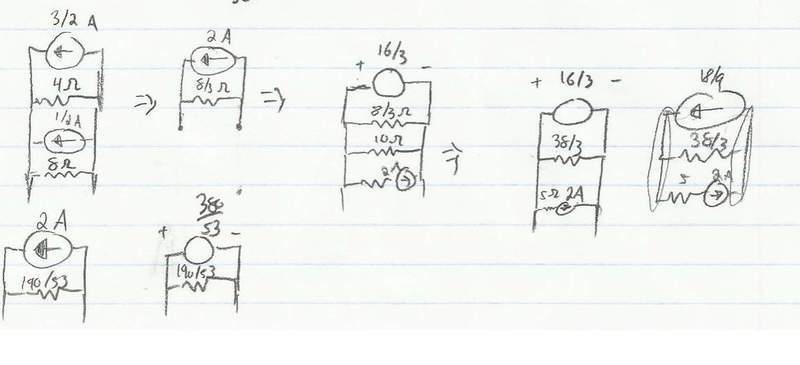 3/2 A
4Ω
1/2A
8Ω
⇒
2 A
8/3 Ω
⇒
16/3
+ -
8/3 Ω
10Ω
2A
⇒
+ 16/3 -
38/3
5Ω 2A
18/9
38/3
5 2A
2 A
190/53
380
53
+ -
190/53